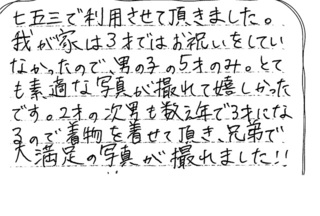 七五三で利用させて頂きました。
我が家は3才ではお祝いをしてい
なかったので、男の子の5才のみ。とて
も素適な写真が撮れて嬉しかった
です。2才の次男も数え年で3才にな
るので着物を着せて頂き、兄弟で
大満足の写真が撮れました!!